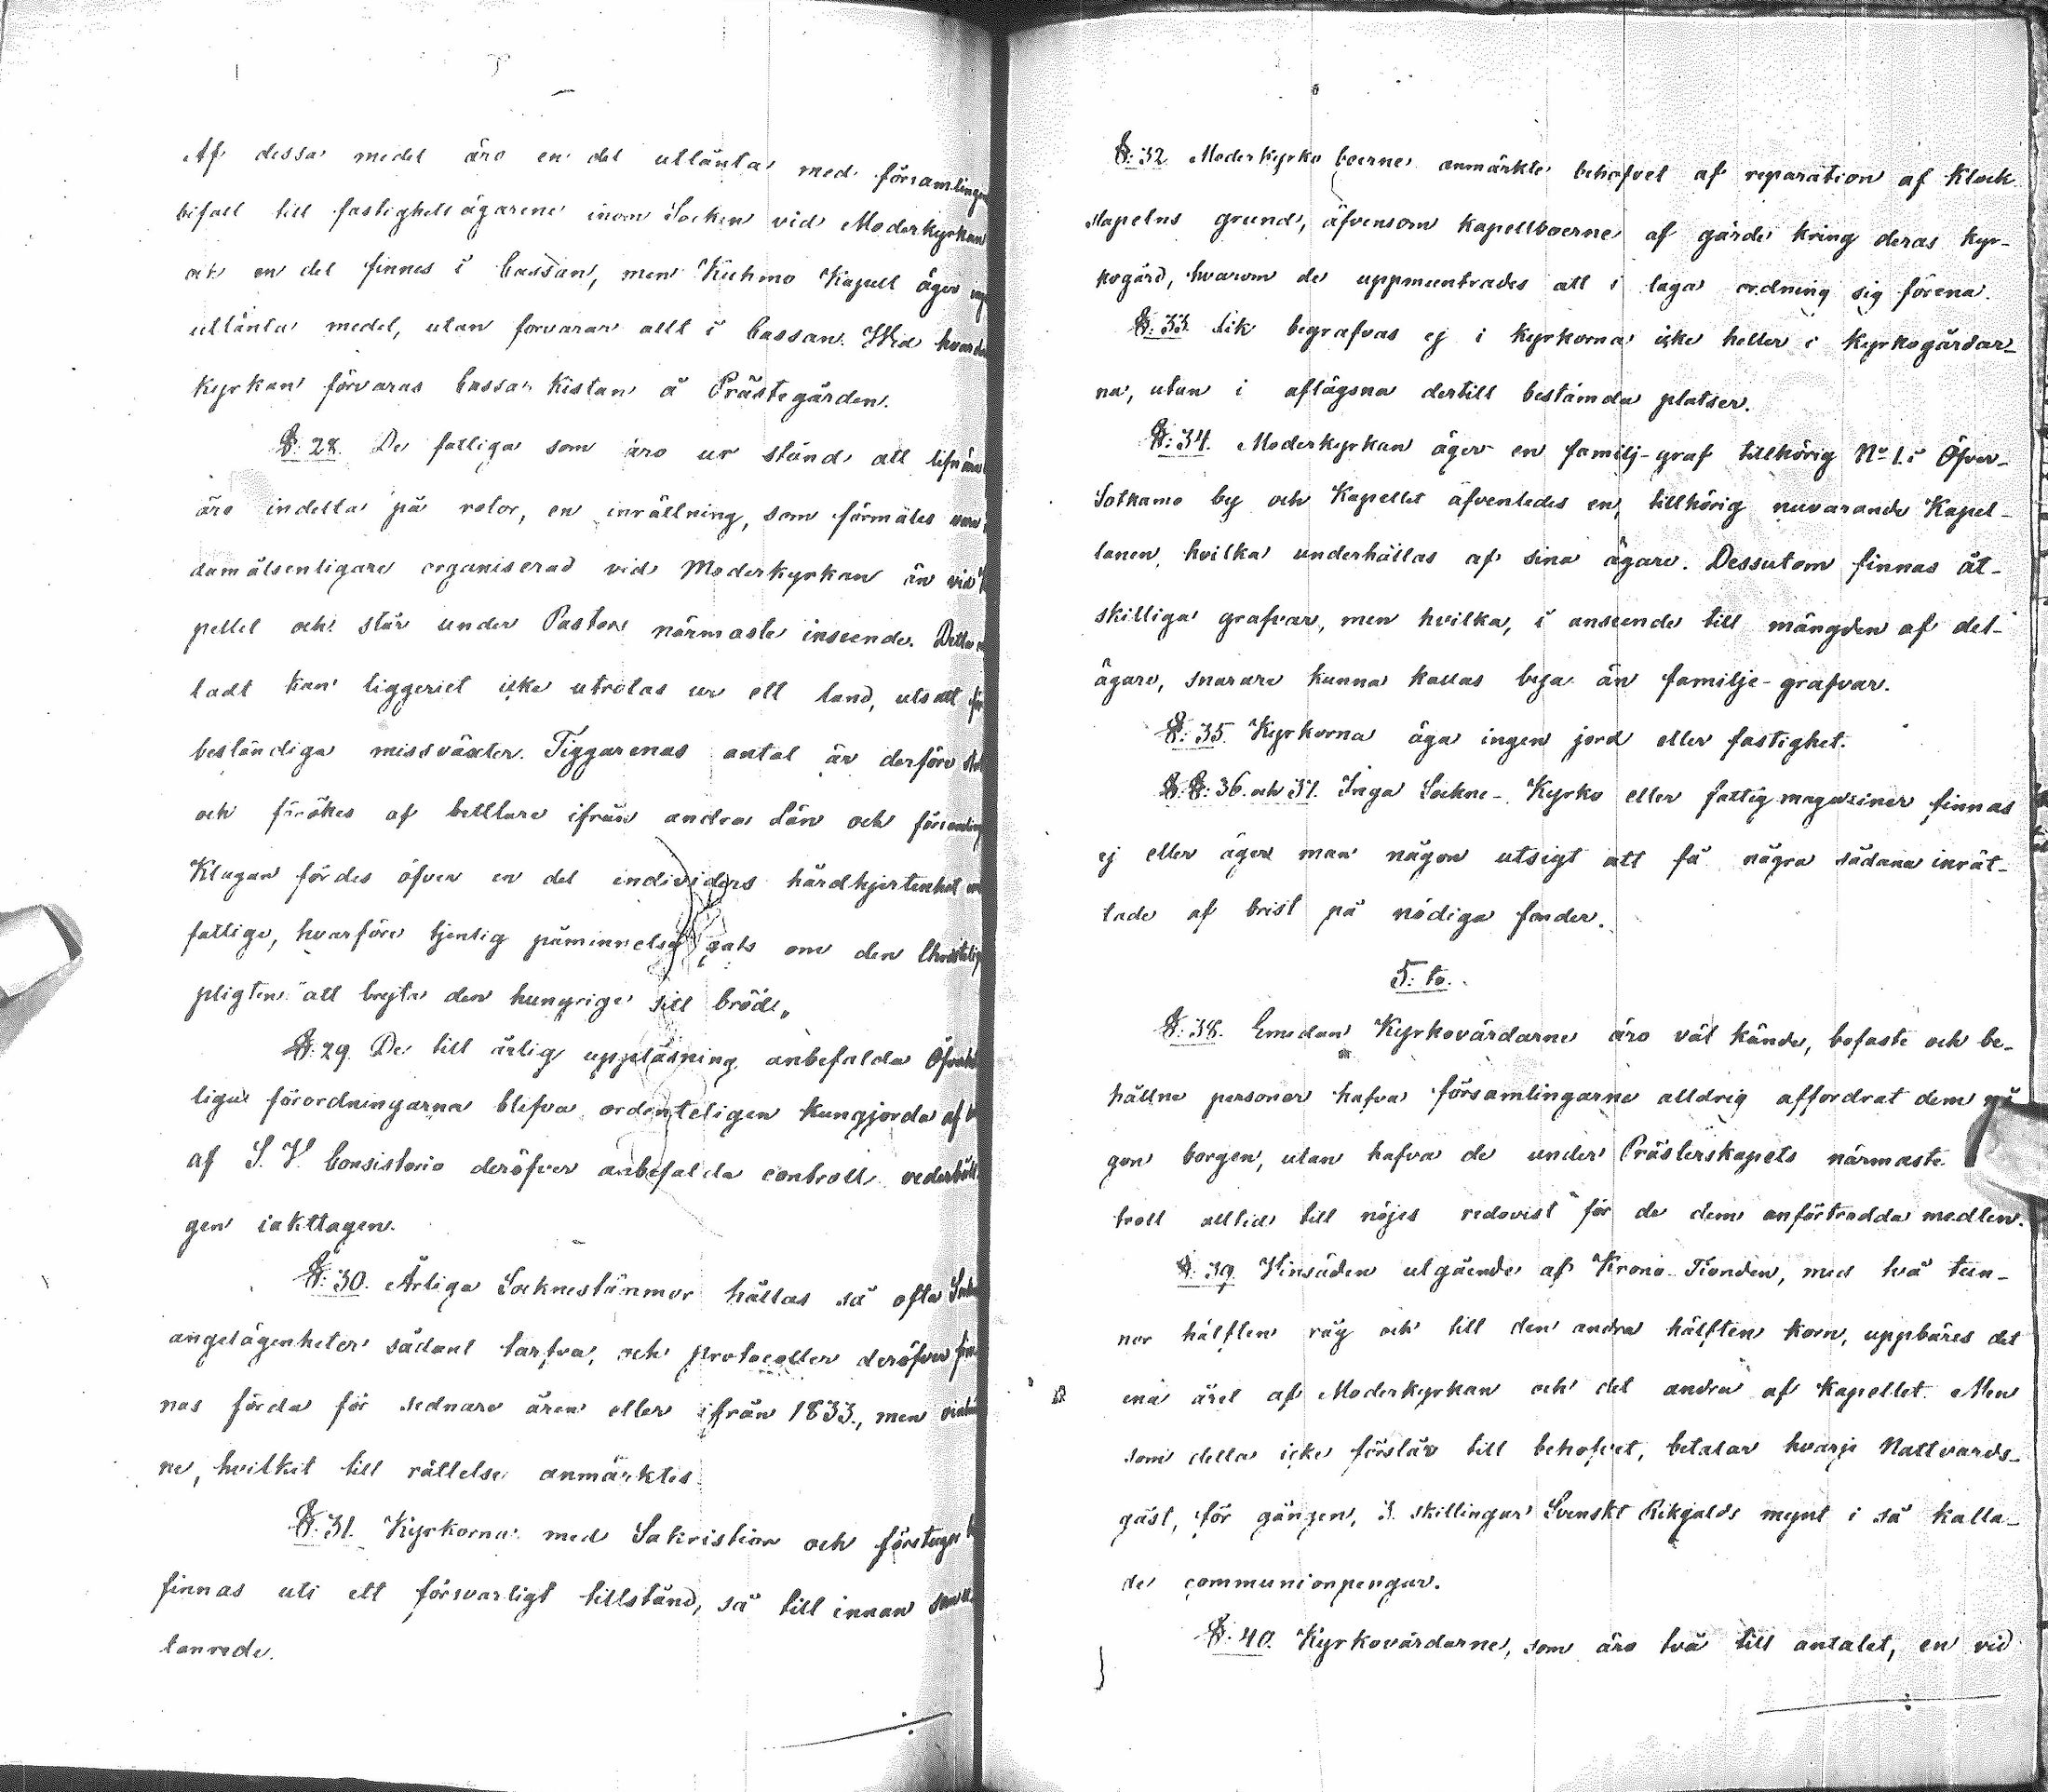 Af dessa medel äro en del utlänta med församlingens
bifall till fastighetsägarene inom Socken vid Moderkyrkan
och en del finnes i Cassan, men Kuhmo Kapell äger
utlänta medel, utan förvarar allt i Cassan. Wid
kyrkan förvaras Cassa-Kistan å Prästegården.
§: 28. De fattiga som äro ur stånd att
äro indelta på rotor, en inrättning, som förmäles
damålsenligare organiserad vid Moderkyrkan än vid
pellet och står under Pastors närmaste inseende. Detta
ladt kan tiggeriet icke utrotas ur ett land, utsatt för
beständiga missväxter. Tiggarenas antal är derföre
och förökes af betllare ifrån andra Län och
Klagan fördes öfver en del individers hårdhjertenhet
fattige, hvarföre tjenlig påminnelse gafs om den
pligten "att bryta den hungrige sitt bröd".
§: 29. De till årlig uppläsning anbefalda
liga förordningarna blefva ordenteligen kungjorda af
af S. V. Consistorio deröfver anbefalda controll
gen iakttagen.
§: 30. Årliga Socknestämmor hållas så ofta
angelägenheter sådant tarfva, och protocoller deröfver
nas förda för sednare åren eller ifrån 1833., men
ne, hvilket till rättelse anmärktes.
§: 31. Kyrkorna med Sakristior och
finnas uti ett försvarligt tillstånd, så till innan
tanrede.
§: 32. Moderkyrko boerne anmärkte behofvet af reparation af Klock
stapelns grund, äfvensom Kapellboerne af gärde kring deras kyr-
kogård, hvarom de uppmuntrades att i laga ordning sig förena.
§: 33. Lik begrafvas ej i kyrkorna icke heller i kyrkogårdar-
na, utan i aflägsna dertill bestämda platser.
§: 34. Moderkyrkan äger en familj-graf tillhörig No 1. i Öfver-
Sotkamo by och Kapellet äfvenledes en, tillhörig nuvarande Kapel-
lanen, hvilka underhållas af sina ägare. Dessutom finnas åt-
skilliga grafvar, men hvilka, i anseende till mängden af del-
ägare, snarare kunna kallas bya än familje-grafvar.
§: 35. Kyrkorna äga ingen jord eller fastighet.
§.§: 36. och 37. Inga Sockne- Kyrko eller fattigmagaziner finnas
ej eller äger man någon utsigt att få några sådana inrät-
tade af brist på nödiga fonder.
5: to.
§: 38. Emedan Kyrkovärdarne äro väl kände, bofaste och be-
hållne personer hafva församlingarne alldrig affordrat dem nå
gon borgen, utan hafva de under Prästerskapets närmaste
troll alltid till nöjes redovist för de dem anförtrodda medlen.
§: 39. Vinsäden utgående af Krono Tionden, med två tun-
nor hälften råg och till den andra hälften korn, uppbäres det
ena året af Moderkyrkan och det andra af Kapellet. Men
som detta icke förslår till behofvet, betalar hvarje Nattvards-
gäst, för gången, 3 skillingar Svenskt Rikgälds mynt i så kalla-
de communionpengar.
§: 40. Kyrkovärdarne, som äro två till antalet, en vid